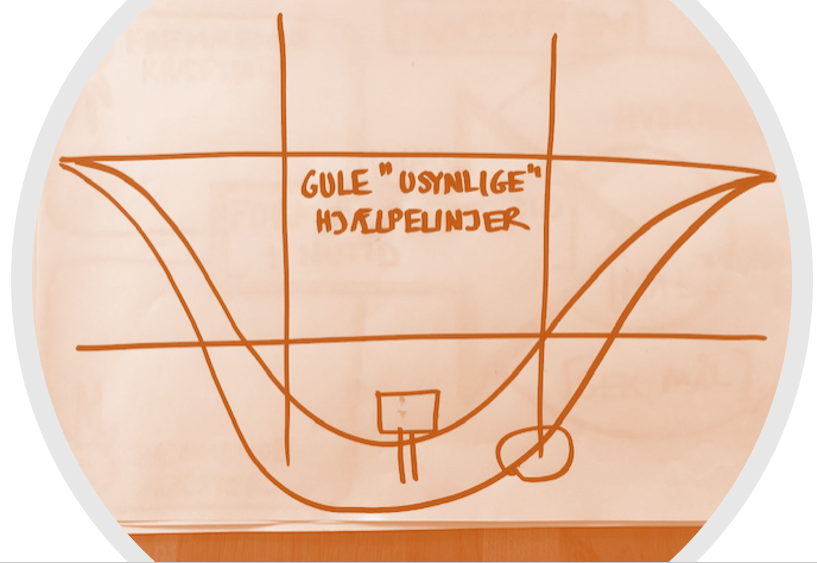 GULE "USYNLIGE"
HJÆLPELINJER